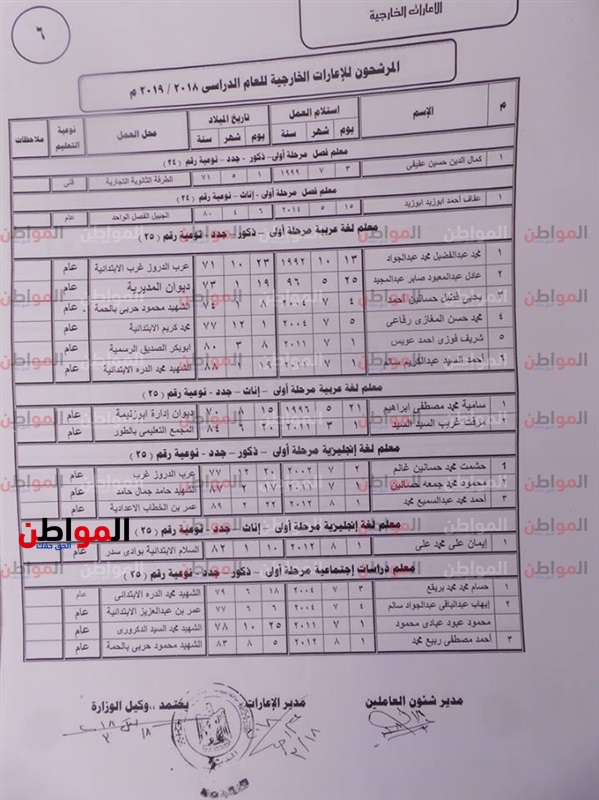 الاعارات الخارجية
٦
المرشحون للإعارات الخارجية للعام الدراسى ٢٠١٨ / ٢٠١٩ م
م الإسم إستلام العمل تاريخ الميلاد محل العمل نوعية التعليم ملاحظات
يوم شهر سنة يوم شهر سنة
معلم فصل مرحلة أولى - ذكور - جدد - نوعية رقم (٢٤)
١ كمال الدين حسين عفيفى ٣ ٧ ١٩٩٩ ١ ٥ ٧١ الطرفة الثانوية التجارية فنى
معلم فصل مرحلة أولى - إناث - نوعية رقم (٢٤)
١ عفاف احمد ابوزيد ابوزيد ١٥ ٥ ٢٠١٤ ٦ ٤ ٨٠ الجبيل الفصل الواحد عام
معلم لغة عربية مرحلة أولى - ذكور - جدد - نوعية رقم (٢٥)
١ محمد عبدالفضيل محمد عبدالجواد ١٣ ١٠ ١٩٩٢ ٢٣ ١٠ ٧١ عرب الدروز غرب الابتدائية عام
٢ عادل عبدالمعبود صابر عبدالمجيد ٢٥ ٥ ٩٦ ١٩ ١ ٧٣ ديوان المديرية عام
٣ يحيى قنديل حسانين احمد ٤ ٧ ٢٠٠٤ ٨ ٧٤ الشهيد محمود حربى بالحمة عام
٤ محمد حسن المغازى رفاعى ٥ ٧ ٢٠٠٤ ١ ١٢ ٧٧ محمد كريم الابتدائية عام
٥ شريف فوزى احمد عويس ١ ٧ ٢٠١١ ٨ ٣ ٨٠ ابوبكر الصديق الرسمية عام
أحمد السيد عبدالكريم سالم ١ ٧ الشهيد محمد الدره الابتدائية عام
معلم لغة عربية مرحلة أولى - إناث - جدد - نوعية رقم (٢٥)
١ سامية محمد مصطفى ابراهيم ٢١ ٥ ١٩٩٦ ١٥ ٨ ٧٠ ديوان إدارة ابوزنيمة عام
٢ مرفت غريب السيد السيد ١ ٣ ٢٠١١ ٦ ٨٤ المجمع التعليمى بالطور عام
معلم لغة إنجليزية مرحلة أولى - ذكور - جدد - نوعية رقم (٢٥)
١ حشمت محمد حسانين غانم ٢ ٧ ٢٠٠٢ ٢٠ ١٢ ٧٧ عرب الدروز غرب عام
٢ محمود محمد جمعه حسانين ١ ٧ ٢٠١١ ١٧ ٢ ٨٧ الشهيد حامد جمال حامد عام
٣ أحمد محمد عبدالسميع محمد ١ ٨ ٢٠١٢ ٢٢ ٢ ٨٩ عمر بن الخطاب الإعدادية عام
معلم لغة إنجليزية مرحلة أولى - إناث - جدد - نوعية رقم (٢٥)
١ إيمان على محمد على ١ ٨ ٢٠١٢ ١٠ ١ ٨٢ السلام الابتدائية بوادى سدر عام
معلم دراسات إجتماعية مرحلة أولى - ذكور - جدد - نوعية رقم (٢٥)
١ حسام محمد محمد بريقع ٣ ٧ ٢٠٠٤ ١٨ ٦ ٧٩ الشهيد محمد الدره الابتدائى عام
٢ إيهاب عبدالباقى عبدالجواد سالم ٤ ٧ ٢٠٠٤ ٧٧ عمر بن عبدالعزيز الابتدائية عام
محمود عبود عبادى محمود ١ ٧ ٢٠١١ ٢٥ ١٠ ٧٨ الشهيد محمد السيد الدكرورى عام
٣ أحمد مصطفى ربيع محمد ١ ٨ ٢٠١٢ ٥ ٨ ٨٣ الشهيد محمود حربى بالحمة عام
المواطن
مدير شئون العاملين مدير الإعارات يعتمد ،، وكيل الوزارة